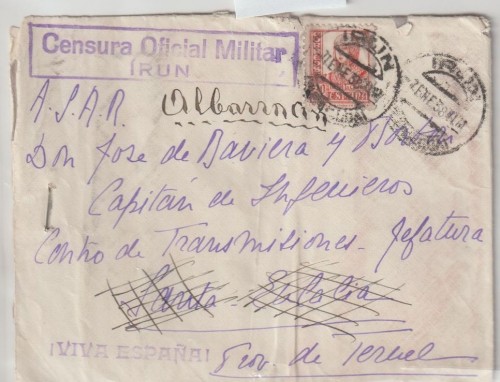 Censura Oficial Militar
IRUN
IRUN
IRUN
A.S.A.R.
Albarracín
Don Jose de Baviera y Borbón
Capitán de Ingenieros
Centro de Transmisiones - Jefatura
Santa Eulalia
¡VIVA ESPAÑA!
Prov. de Teruel